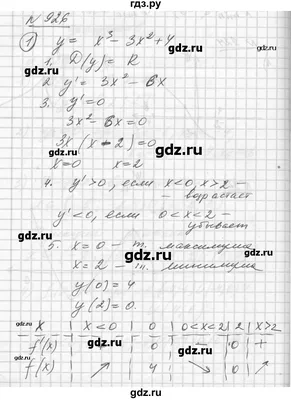 гдз.ру
№ 926
① y = x³ - 3x² + 4
1. D(y) = R
2. y' = 3x² - 6x
3. y' = 0
3x² - 6x = 0
3x (x - 2) = 0
x = 0 x = 2
4. y' > 0, если x < 0, x > 2 –
– возрастает
y' < 0, если 0 < x < 2 –
– убывает
5. x = 0 – т. максимума
x = 2 – т. минимума
y(0) = 4
y(2) = 0.
x | x < 0 | 0 | 0 < x < 2 | 2 | x > 2
f'(x) | + | 0 | – | 0 | +
f(x) | ↗ | 4 | ↘ | 0 | ↗
gdz.ru
gdz.ru
gdz.ru
gdz.ru
gdz.ru
gdz.ru
gdz.ru
gdz.ru
gdz.ru
gdz.ru